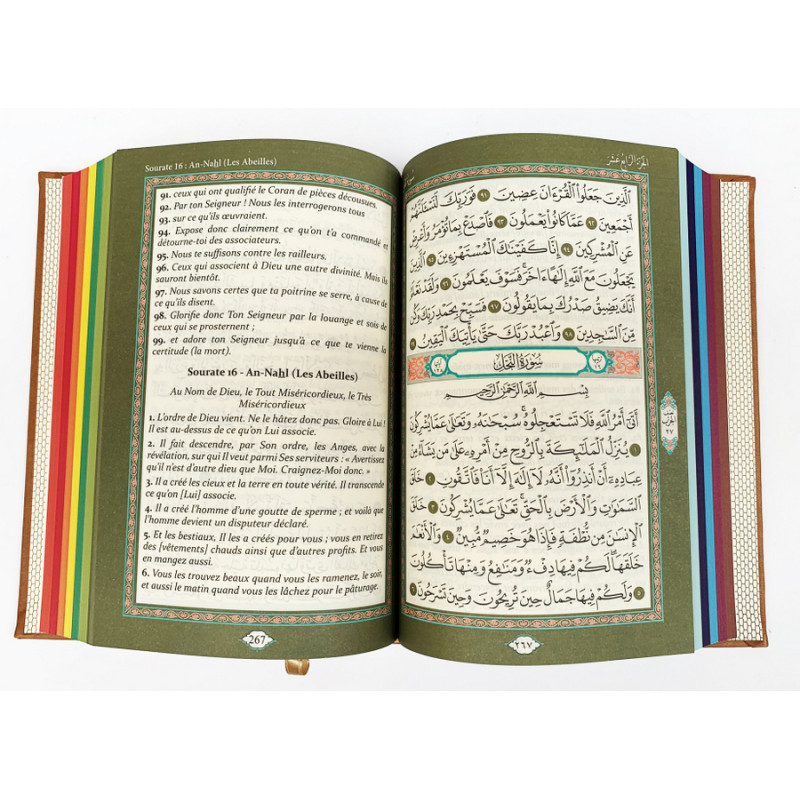 Sourate 16 : An-Nahl (Les Abeilles)
91. ceux qui ont qualifié le Coran de pièces décousues.
92. Par ton Seigneur ! Nous les interrogerons tous
93. sur ce qu'ils œuvraient.
94. Expose donc clairement ce qu'on t'a commandé et
détourne-toi des associateurs.
95. Nous te suffisons contre les railleurs.
96. Ceux qui associent à Dieu une autre divinité. Mais ils
sauront bientôt.
97. Nous savons certes que ta poitrine se serre, à cause de
ce qu'ils disent.
98. Glorifie donc Ton Seigneur par la louange et sois de
ceux qui se prosternent ;
99. et adore ton Seigneur jusqu'à ce que te vienne la
certitude (la mort).
Sourate 16 - An-Nahl (Les Abeilles)
Au Nom de Dieu, le Tout Miséricordieux, le Très
Miséricordieux
1. L'ordre de Dieu vient. Ne le hâtez donc pas. Gloire à Lui !
Il est au-dessus de ce qu'on Lui associe.
2. Il fait descendre, par Son ordre, les Anges, avec la
révélation, sur qui Il veut parmi Ses serviteurs : « Avertissez
qu'il n'est d'autre dieu que Moi. Craignez-Moi donc. »
3. Il a créé les cieux et la terre en toute vérité. Il transcende
ce qu'on [Lui] associe.
4. Il a créé l'homme d'une goutte de sperme ; et voilà que
l'homme devient un disputeur déclaré.
5. Et les bestiaux, Il les a créés pour vous ; vous en retirez
des [vêtements] chauds ainsi que d'autres profits. Et vous
en mangez aussi.
6. Vous les trouvez beaux quand vous les ramenez, le soir,
et aussi le matin quand vous les lâchez pour le pâturage.
267
الجزء الرابع عشر
الَّذِينَ جَعَلُوا الْقُرْءَانَ عِضِينَ ٩١ فَوَرَبِّكَ لَنَسْـَٔلَنَّهُمْ
أَجْمَعِينَ ٩٢ عَمَّا كَانُوا يَعْمَلُونَ ٩٣ فَاصْدَعْ بِمَا تُؤْمَرُ وَأَعْرِضْ
عَنِ الْمُشْرِكِينَ ٩٤ إِنَّا كَفَيْنَٰكَ الْمُسْتَهْزِءِينَ ٩٥ الَّذِينَ
يَجْعَلُونَ مَعَ اللَّهِ إِلَٰهًا ءَاخَرَ فَسَوْفَ يَعْلَمُونَ ٩٦ وَلَقَدْ نَعْلَمُ
أَنَّكَ يَضِيقُ صَدْرُكَ بِمَا يَقُولُونَ ٩٧ فَسَبِّحْ بِحَمْدِ رَبِّكَ وَكُن
مِّنَ السَّٰجِدِينَ ٩٨ وَاعْبُدْ رَبَّكَ حَتَّىٰ يَأْتِيَكَ الْيَقِينُ ٩٩
سُورَةُ النَّحْلِ
بِسْمِ اللَّهِ الرَّحْمَٰنِ الرَّحِيمِ
أَتَىٰ أَمْرُ اللَّهِ فَلَا تَسْتَعْجِلُوهُ سُبْحَٰنَهُۥ وَتَعَٰلَىٰ عَمَّا يُشْرِكُونَ
١ يُنَزِّلُ الْمَلَٰٓئِكَةَ بِالرُّوحِ مِنْ أَمْرِهِۦ عَلَىٰ مَن يَشَآءُ مِنْ
عِبَادِهِۦٓ أَنْ أَنذِرُوٓا أَنَّهُۥ لَآ إِلَٰهَ إِلَّآ أَنَا۠ فَاتَّقُونِ ٢ خَلَقَ
السَّمَٰوَٰتِ وَالْأَرْضَ بِالْحَقِّ تَعَٰلَىٰ عَمَّا يُشْرِكُونَ ٣ خَلَقَ
الْإِنسَٰنَ مِن نُّطْفَةٍ فَإِذَا هُوَ خَصِيمٌ مُّبِينٌ ٤ وَالْأَنْعَٰمَ
خَلَقَهَا لَكُمْ فِيهَا دِفْءٌ وَمَنَٰفِعُ وَمِنْهَا تَأْكُلُونَ
٥ وَلَكُمْ فِيهَا جَمَالٌ حِينَ تُرِيحُونَ وَحِينَ تَسْرَحُونَ ٦
الحزب
٢٧
٢٦٧